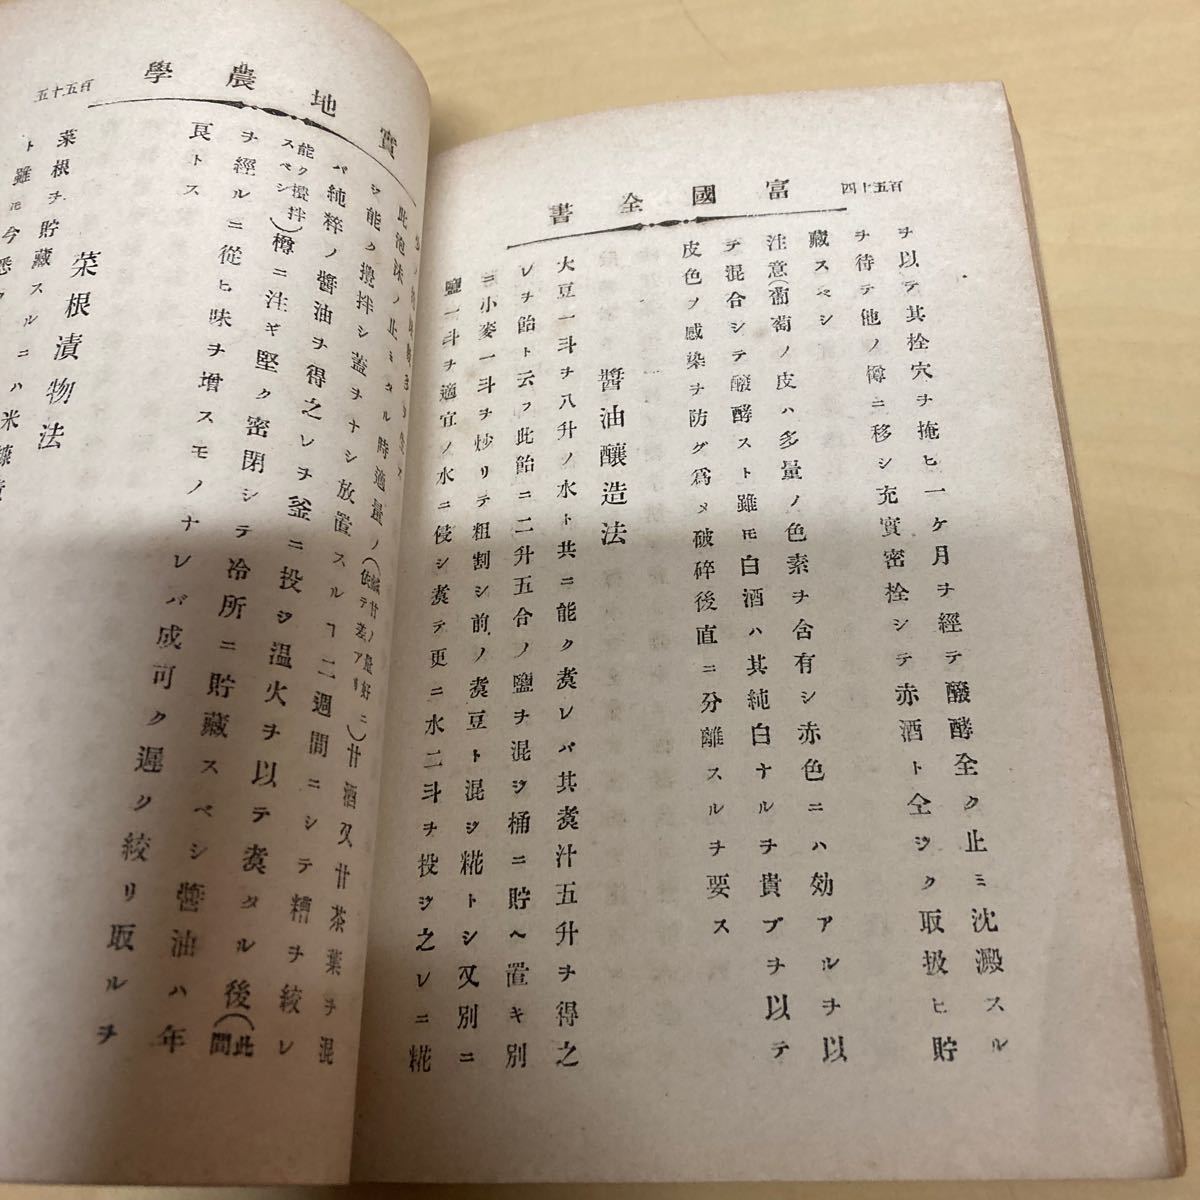 百五十四
富國全書
ヲ以テ其栓穴ヲ掩ヒ一ケ月ヲ經テ醱酵全ク止ミ沈澱スル
ヲ待テ他ノ樽ニ移シ充實密栓シテ赤酒ト仝ジク取扱ヒ貯
藏スベシ
注意(葡萄ノ皮ハ多量ノ色素ヲ含有シ赤色ニハ効アルヲ以
テ混合シテ醱酵スト雖モ白酒ハ其純白ナルヲ貴ブヲ以テ
皮色ノ感染ヲ防グ爲メ破碎後直ニ分離スルヲ要ス
醬油釀造法
大豆一斗ヲ八升ノ水ト共ニ能ク煑レバ其煑汁五升ヲ得之
レヲ飴ト云フ此飴ニ二升五合ノ鹽ヲ混ジ桶ニ貯ヘ置キ別
ニ小麥一斗ヲ炒リテ粗割シ前ノ煑豆ト混ジ糀トシ又別ニ
鹽一斗ヲ適宜ノ水ニ侵シ煑テ更ニ水二斗ヲ投ジ之レニ糀
實地農學
百五十五
此泡沫ノ止ミタル時適量ノ(鹹甘ノ最好ニ依テ差アリ)甘酒又甘茶葉ヲ混
ヲ能ク攪拌シ蓋ヲナシ放置スルヿ二週間ニシテ糟ヲ絞レ
バ純粹ノ醬油ヲ得之レヲ釜ニ投ジ温火ヲ以テ煑タル後(此間
能ク攪拌スベシ)樽ニ注ギ堅ク密閉シテ冷所ニ貯藏スベシ醬油ハ年
ヲ經ルニ從ヒ味ヲ增スモノナレバ成可ク遲ク絞リ取ルヲ
良トス
菜根漬物法
菜根ヲ貯藏スルニハ米糠
ト雖モ今